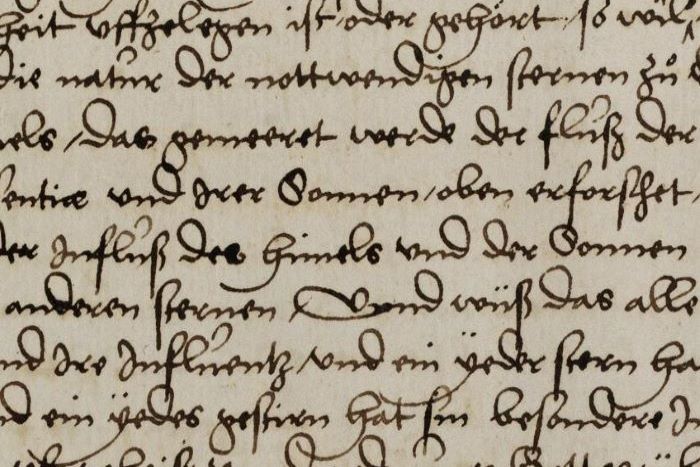 heit vffzelegen ist oder gehört / so wil
die natur der nottwendigen sternen zů
els / das gemeeret werde der flusz der
entia vnd Irer Sonnen / oben erforschet /
der Influsz des himels vnd der Sonnen
anderen sternen / Vnnd wüsz das alle
nd Ire Influentz / vnd ein yeder stern ha
d ein yedes gestirn hat sin besondere I